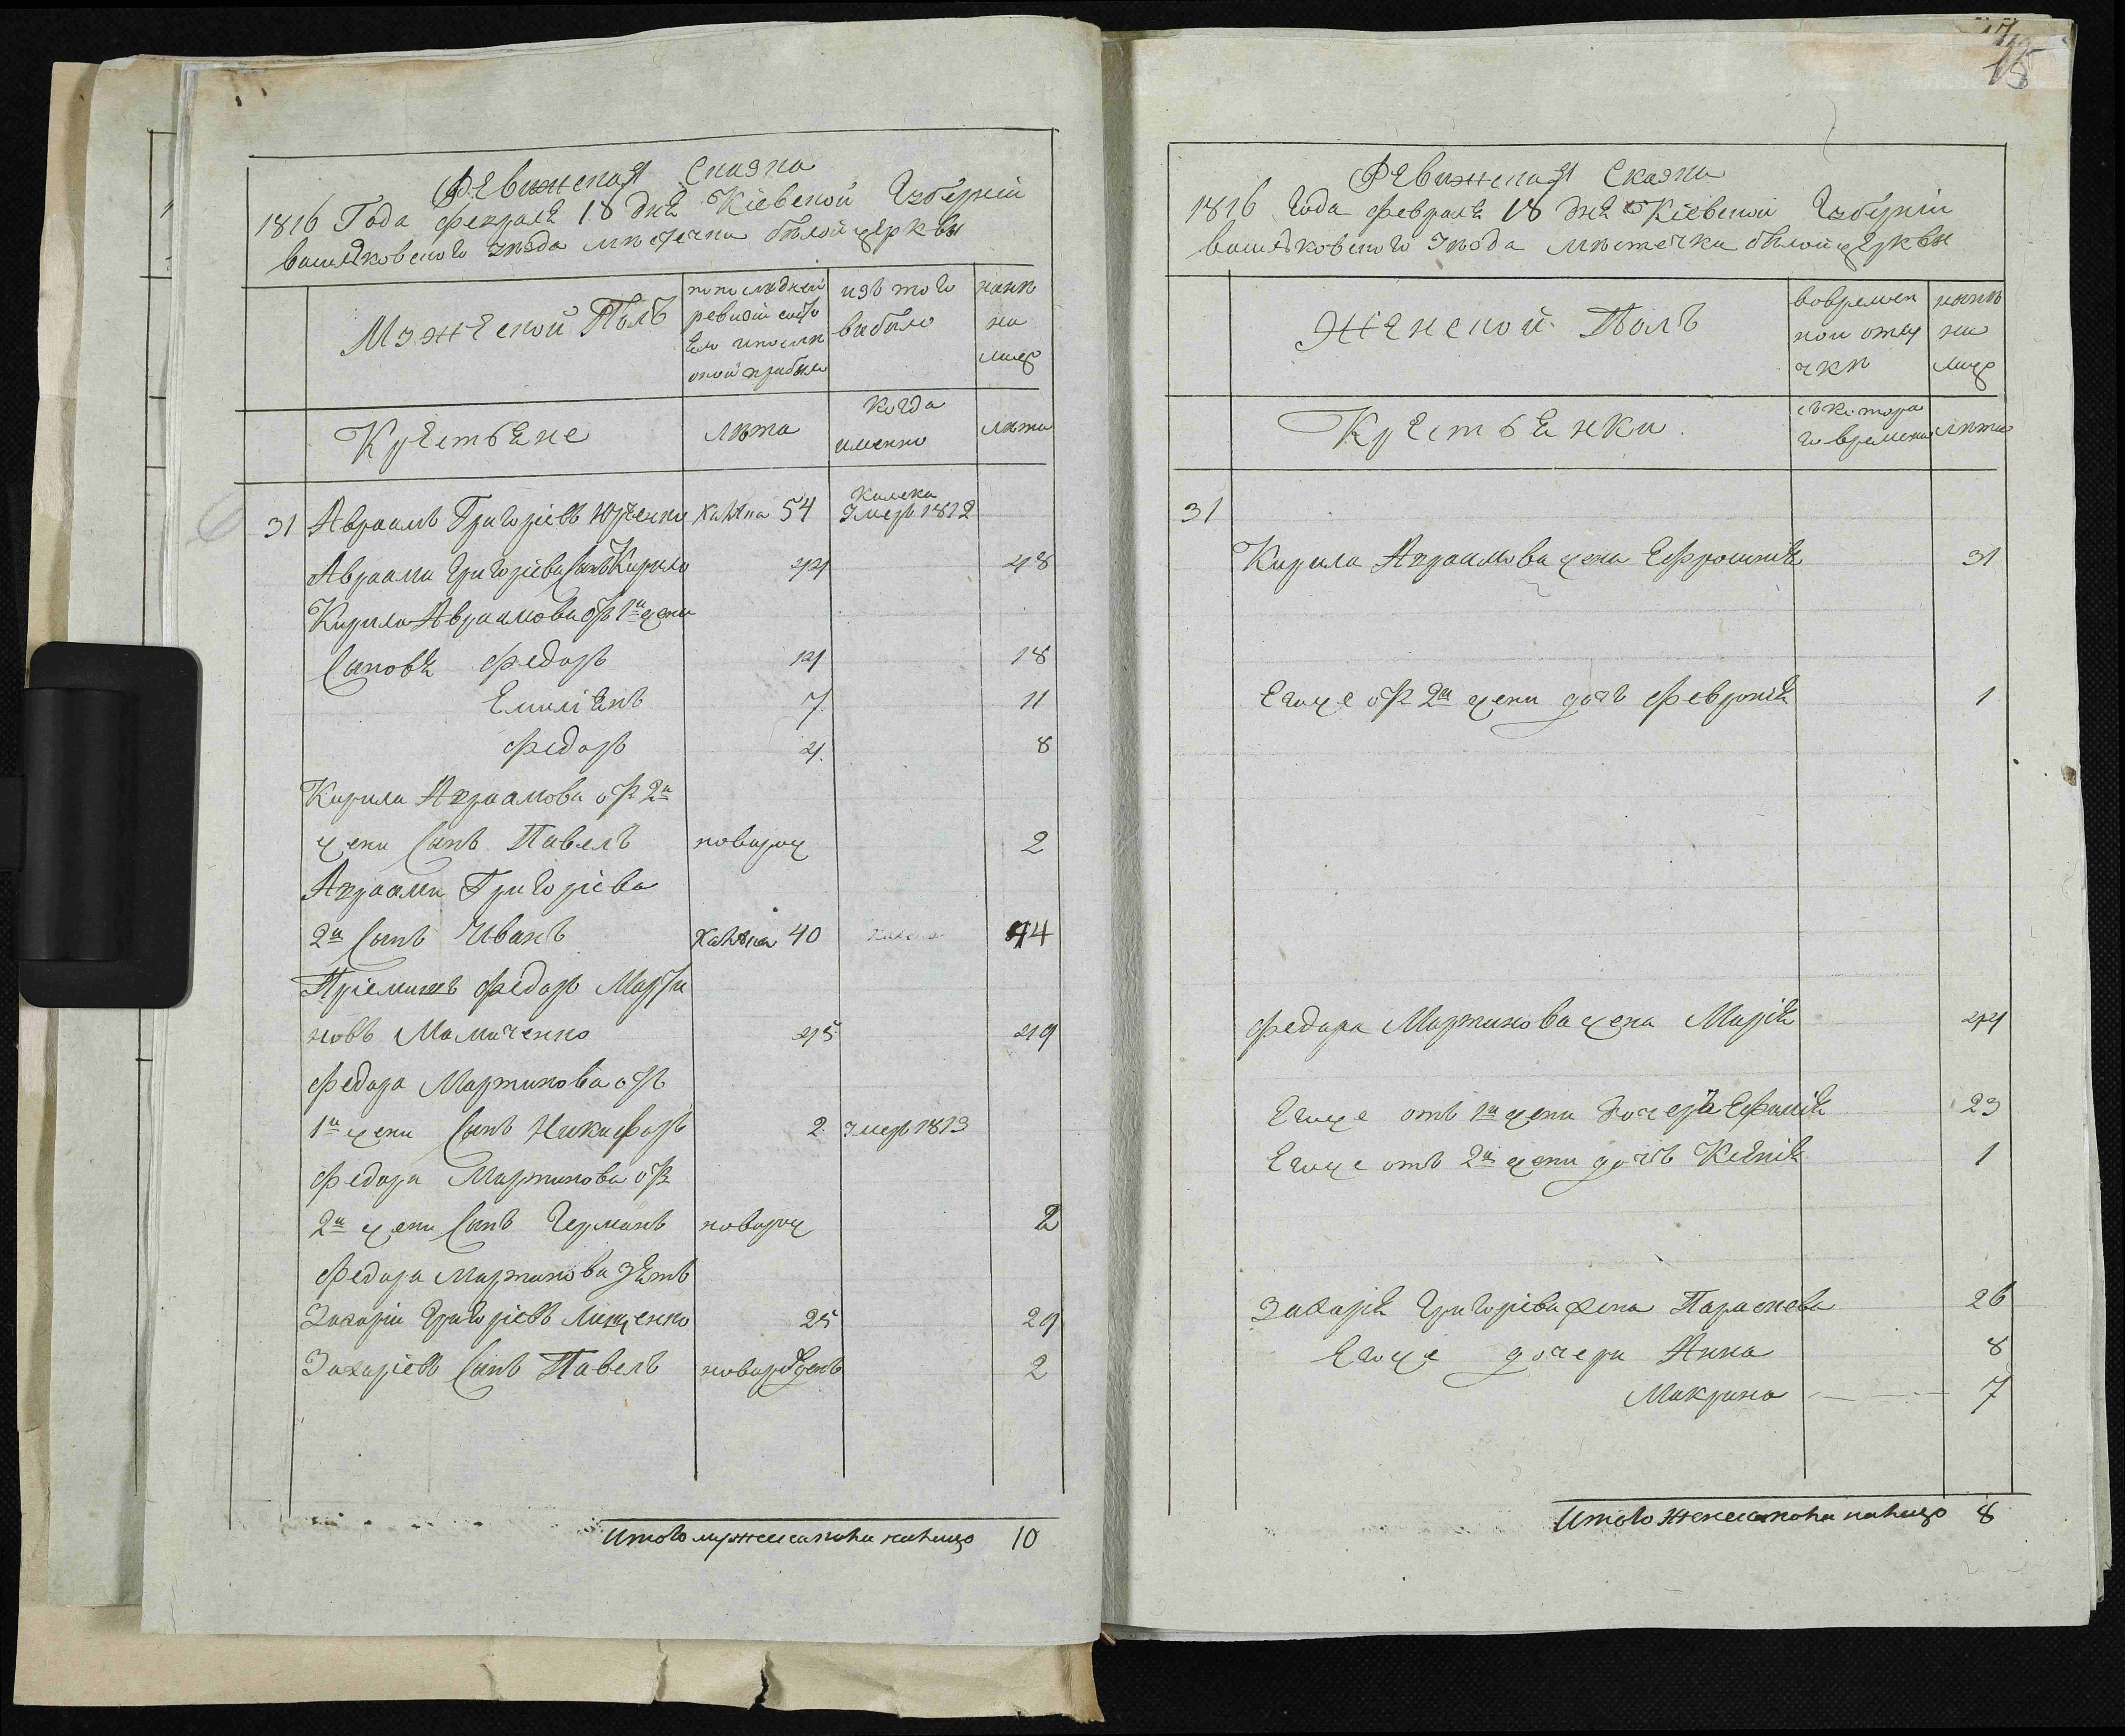 Ревижская Сказка
1816 Года Февраля 18 дня Кіевской Губерніи
васильковского уезда местечка белой церкви
Мужеской Полъ
по последней
ревизіи состо
ело и после
оной прибыло
изъ того
выбыло
ныне
на
лицо
Крестьяне
лета
когда
именно
лета
31 Авраамъ Григоріевъ Юрченко калека 54 калека умеръ 1812
Авраама Григоріева Сынъ Кирило 44 48
Кирила Авраамова отъ 1й жены
Сыновя Федоръ 14 18
Емиліянъ 7 11
Федоръ 4 8
Кирила Авраамова отъ 2й
жены Сынъ Павелъ новорож 2
Авраама Григоріева
2й Сынъ Иванъ калека 40 калека 44
Пріемишъ Федоръ Марти
новъ Мамиченко 45 49
Федора Мартинова отъ
1й жены Сынъ Никифоръ 2 умеръ 1813
Федора Мартинова отъ
2й жены Сынъ Германъ новорож 2
Федора Мартинова зять
Захарій Григоріевъ Лищенко 25 29
Захаріевъ Сынъ Павелъ новорожденъ 2
Итого мужеска пола налицо 10
18
Ревижская Сказка
1816 Года Февраля 18 дня Кіевской Губерніи
васильковского уезда местечка белой церкви
Женской Полъ
вовремен
ной отлу
чке
ныне
на
лицо
Крестьянки
съ котора
го времени
лета
31
Кирила Авраамова жена Ефросинія 31
Егоже отъ 2й жены дочь Февронія 1
Федора Мартинова жена Марія 44
Егоже отъ 1й жены дочеръ Ефимія 23
Егоже отъ 2й жены дочь Ксенія 1
Захарія Григоріева жена Параскева 26
Егоже дочери Анна 8
Макрина 7
Итого женска пола налицо 8